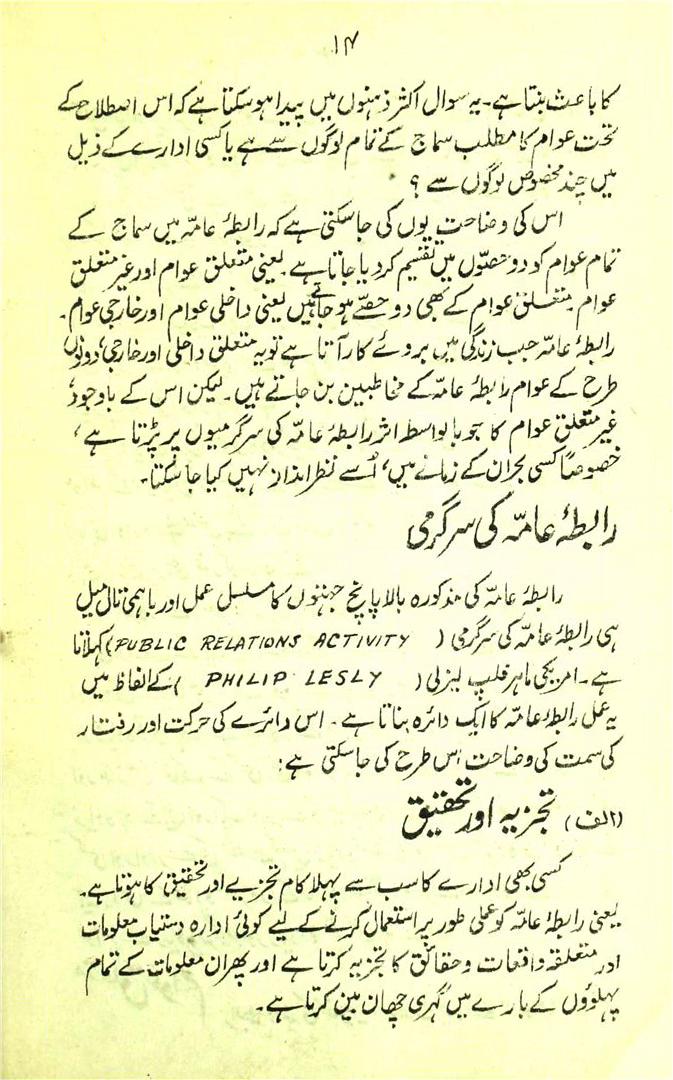 ۱۴
کا باعث بنتا ہے۔ یہ سوال اکثر ذہنوں میں پیدا ہو سکتا ہے کہ اس اصطلاح کے
تحت عوام کا مطلب سماج کے تمام لوگوں سے ہے یا کسی ادارے کے ذیل
میں چند مخصوص لوگوں سے ؟
اس کی وضاحت یوں کی جا سکتی ہے کہ رابطۂ عامّہ میں سماج کے
تمام عوام کو دو حصّوں میں تقسیم کر دیا جاتا ہے۔ یعنی متعلق عوام اور غیر متعلق
عوام۔ متعلق عوام کے بھی دو حصّے ہو جاتے ہیں یعنی داخلی عوام اور خارجی عوام۔
رابطۂ عامّہ جب زندگی میں بروئے کار آتا ہے تو یہ متعلق داخلی اور خارجی، دونوں
طرح کے عوام رابطۂ عامّہ کے مخاطبین بن جاتے ہیں۔ لیکن اس کے باوجود،
غیر متعلق عوام کا جو بالواسطہ اثر رابطۂ عامّہ کی سرگرمیوں پر پڑتا ہے،
خصوصاً کسی بحران کے زمانے میں، اُسے نظر انداز نہیں کیا جا سکتا۔
رابطۂ عامّہ کی سرگرمی
رابطۂ عامّہ کی مذکورہ بالا پانچ جہتوں کا مسلسل عمل اور باہمی تال میل
ہی رابطۂ عامّہ کی سرگرمی (PUBLIC RELATIONS ACTIVITY) کہلاتا
ہے۔ امریکی ماہر فلپ لیزلی (PHILIP LESLY) کے الفاظ میں
یہ عمل رابطۂ عامّہ کا ایک دائرہ بناتا ہے۔ اس دائرے کی حرکت اور رفتار
کی سمت کی وضاحت اس طرح کی جا سکتی ہے:
(الف) تجزیہ اور تحقیق
کسی بھی ادارے کا سب سے پہلا کام تجزیے اور تحقیق کا ہوتا ہے۔
یعنی رابطۂ عامّہ کو عملی طور پر استعمال کرنے کے لیے کوئی ادارہ دستیاب معلومات
اور متعلقہ واقعات و حقائق کا تجزیہ کرتا ہے اور پھر ان معلومات کے تمام
پہلوؤں کے بارے میں گہری چھان بین کرتا ہے۔